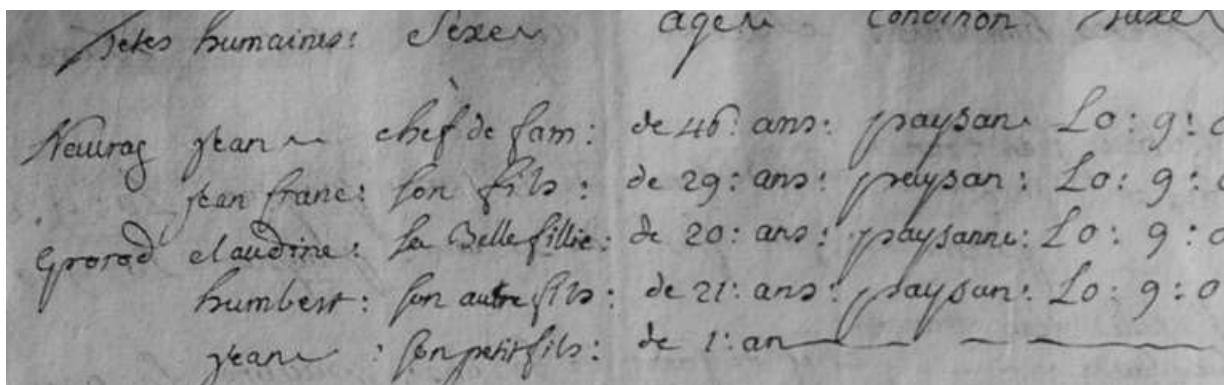 Testes humaines: Sexe age Condition Taxe
Neurag jean chéf de fam: de 46: ans: paysan Lo: 9: 0
jean franc: son fils: de 29: ans: paysan: Lo: 9: 0
claudine: sa Belle fillie: de 20: ans: paysanne: Lo: 9: 0
humbert: son autre fils: de 21: ans: paysan: Lo: 9: 0
jean: son petit fils: de 1: an